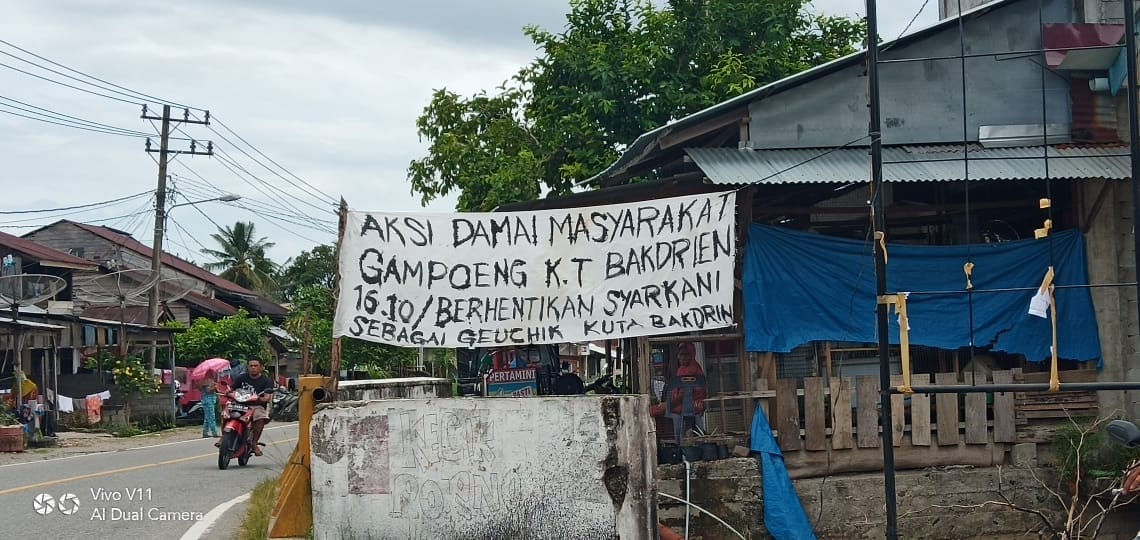 AKSI DAMAI MASYARAKAT
GAMPOENG K.T BAKDRIEN
16.10/BERHENTIKAN SYARKANI
SEBAGAI GEUCHIK KUTA BAKDRIN
PERTAMINI
Vivo V11
AI Dual Camera